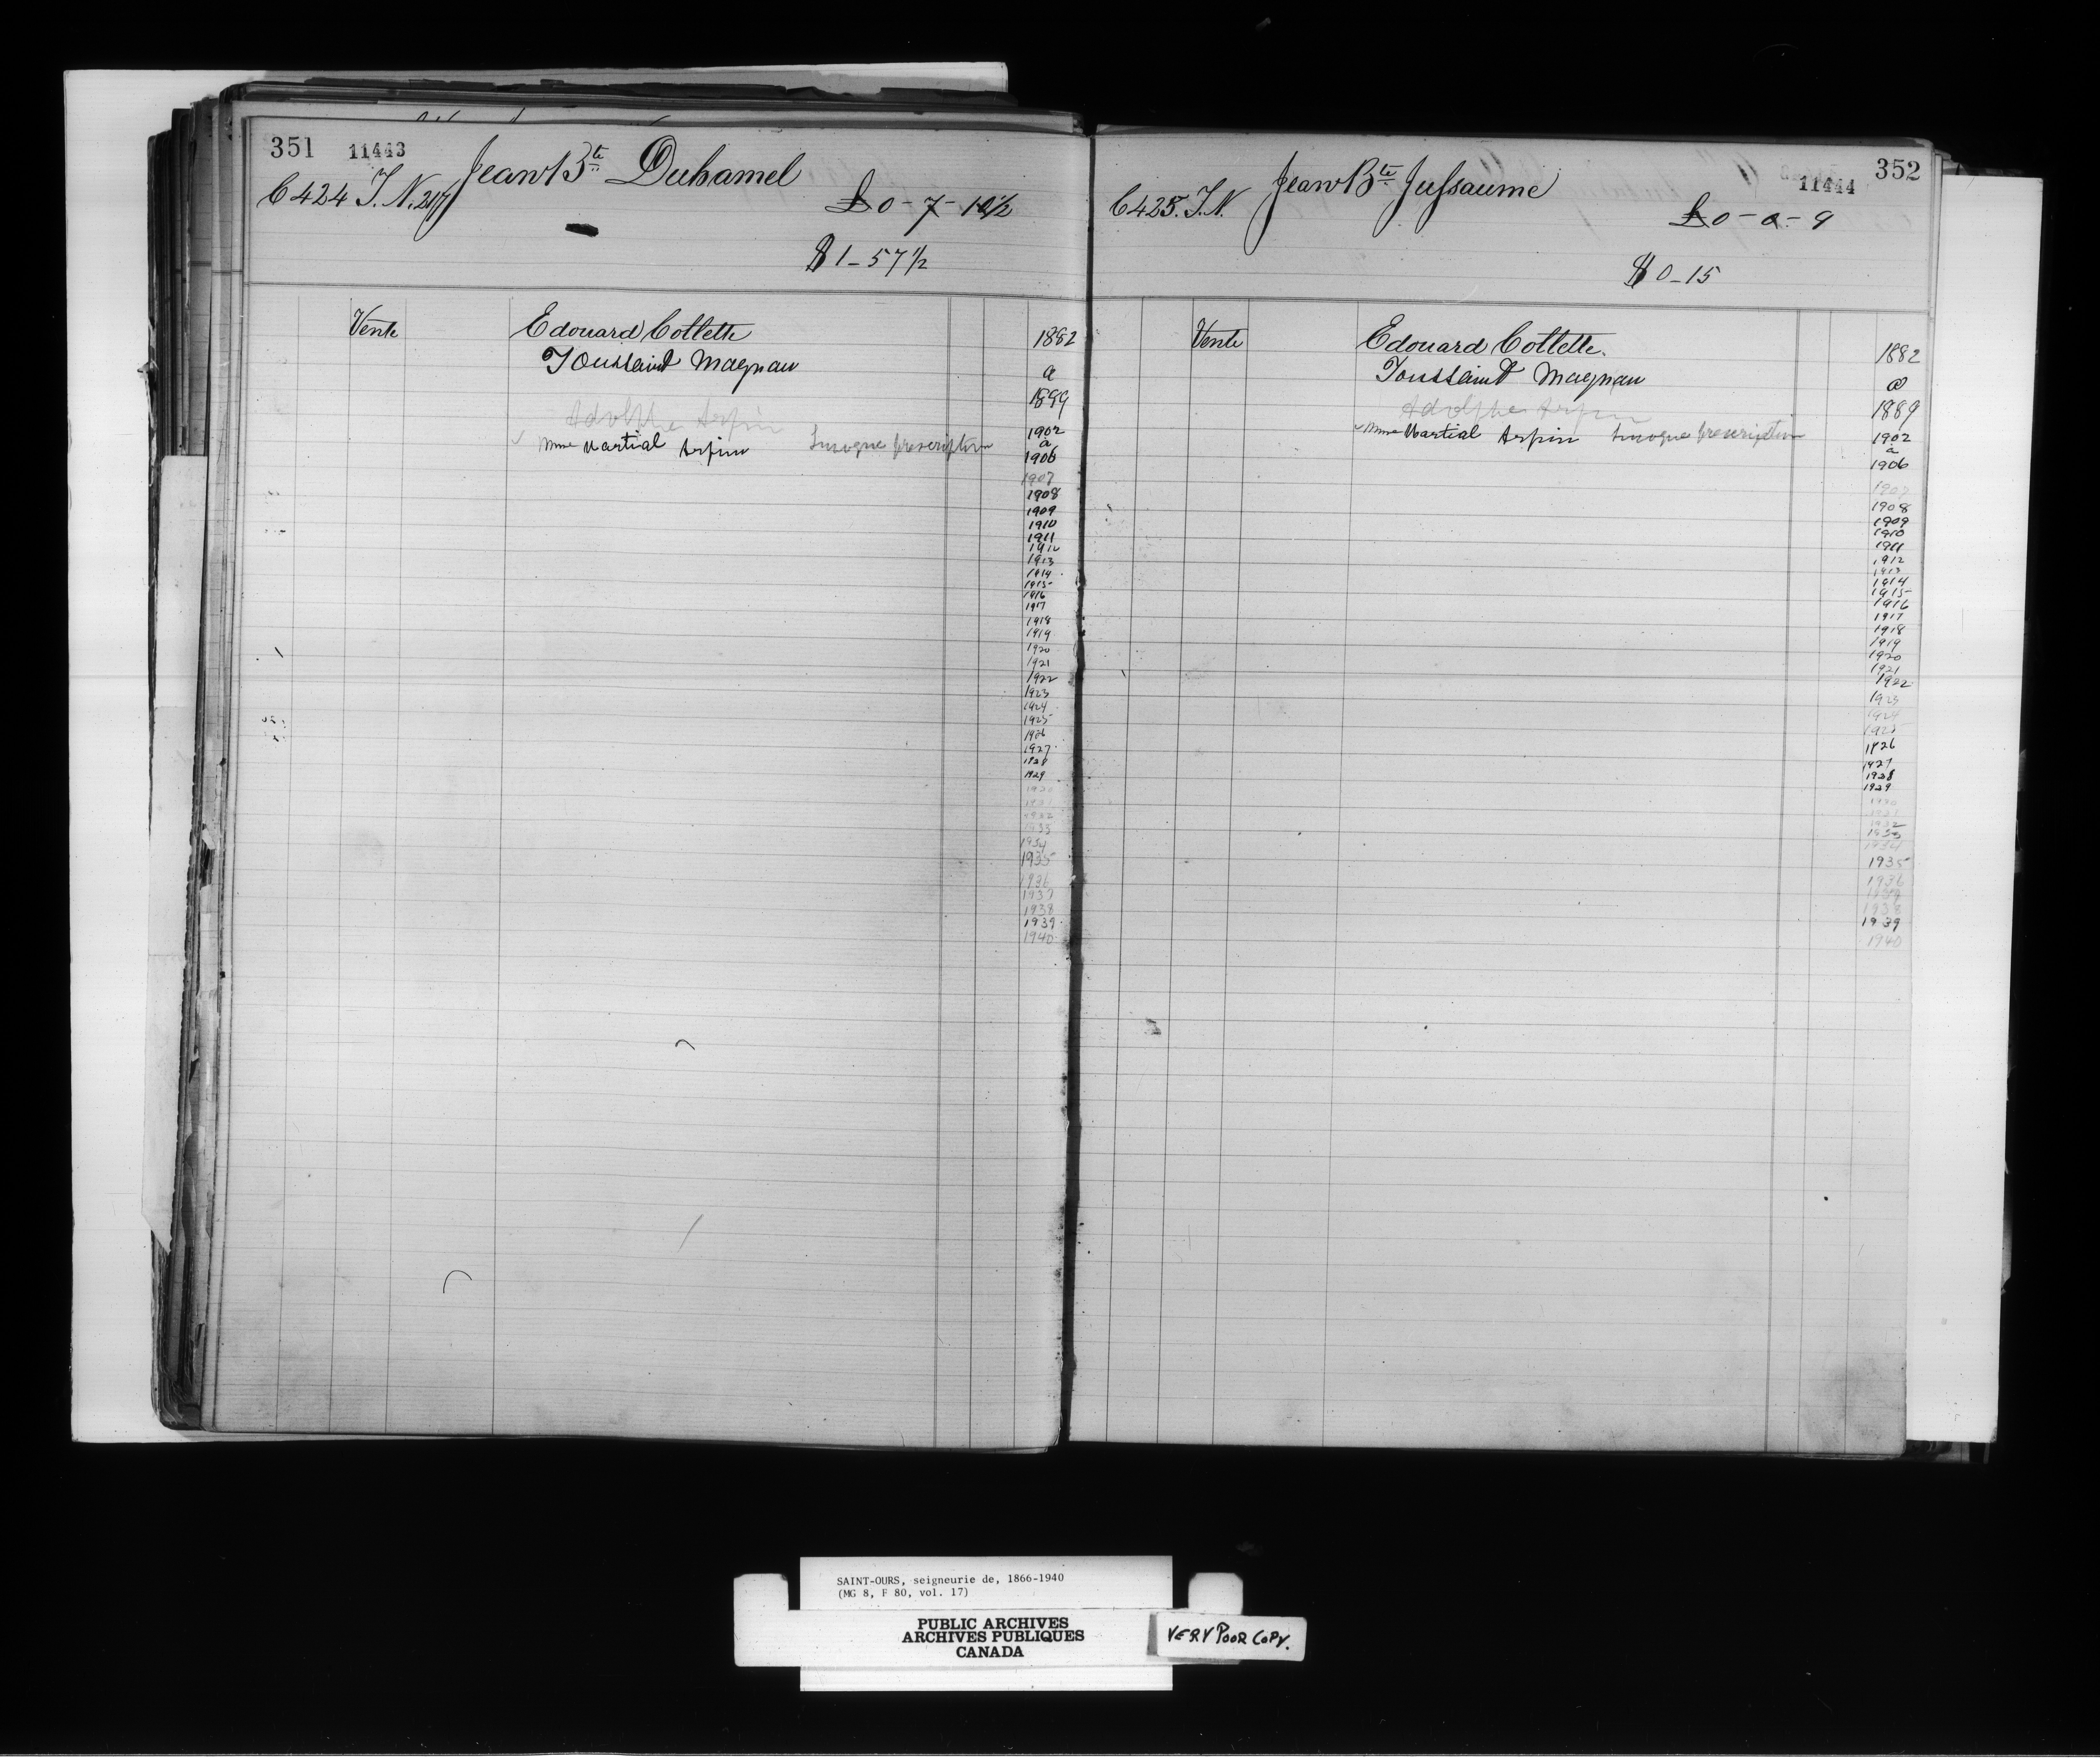 351 11443 Jean Bte Duhamel
C 424 T. N. 217
£ 0 - 7 - 10 1/2
$ 1 - 57 1/2
Vente Edouard Collette 1882
Toussaint Magnan a
1899
Adolphe Arpin
1902
Mme Martial Arpin Invoque prescription a
1906
1907
1908
1909
1910
1911
1912
1913
1914
1915
1916
1917
1918
1919
1920
1921
1922
1923
1924
1925
1926
1927
1928
1929
1930
1931
1932
1933
1934
1935
1936
1937
1938
1939
1940
352
11444
C 425. T. N. Jean Bte Jussaume
£ 0 - 0 - 9
$ 0 - 15
Vente Edouard Collette. 1882
Toussaint Magnan a
Adolphe Arpin 1889
Mme Martial Arpin Invoque prescription 1902
a
1906
1907
1908
1909
1910
1911
1912
1913
1914
1915
1916
1917
1918
1919
1920
1921
1922
1923
1924
1925
1926
1927
1928
1929
1930
1932
1933
1934
1935
1936
1937
1938
1939
1940
SAINT-OURS, seigneurie de, 1866-1940
(MG 8, F 80, vol. 17)
PUBLIC ARCHIVES
ARCHIVES PUBLIQUES
CANADA
VERY POOR COPY.